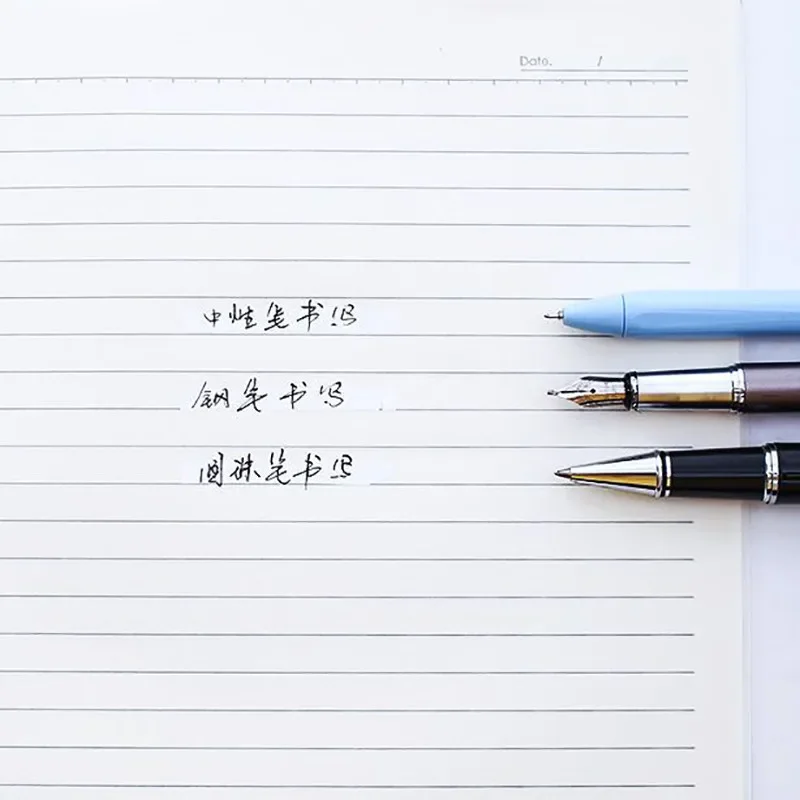 Date. /
中性笔书写
钢笔书写
圆珠笔书写